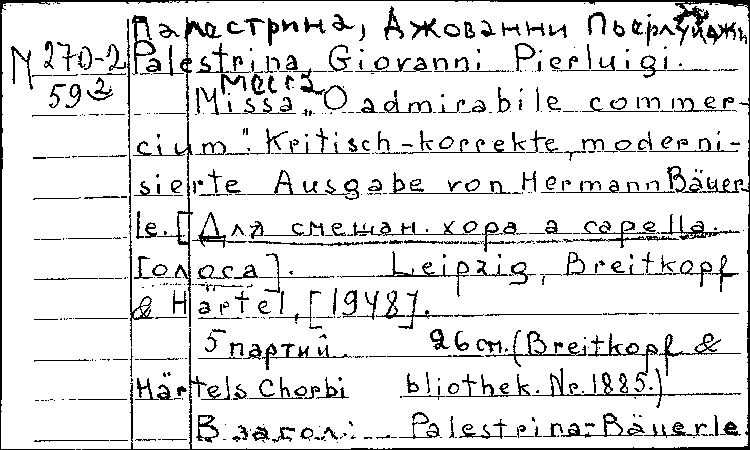 Палестрина, Джованни Пьерлуиджи
М 270-2 Palestrina, Giovanni Pierluigi.
59 2 Месса
Missa „O admirabile commer-
cium". Kritisch-korrekte, moderni-
sierte Ausgabe von Hermann Bäuer
le. [Для смешан. хора a capella.
Голоса]. Leipzig, Breitkopf
& Härtel, [1948].
5 партий. 26 см. (Breitkopf &
Härtels Chorbi bliothek. Nr. 1885.)
В загол.: Palestrina-Bäuerle.